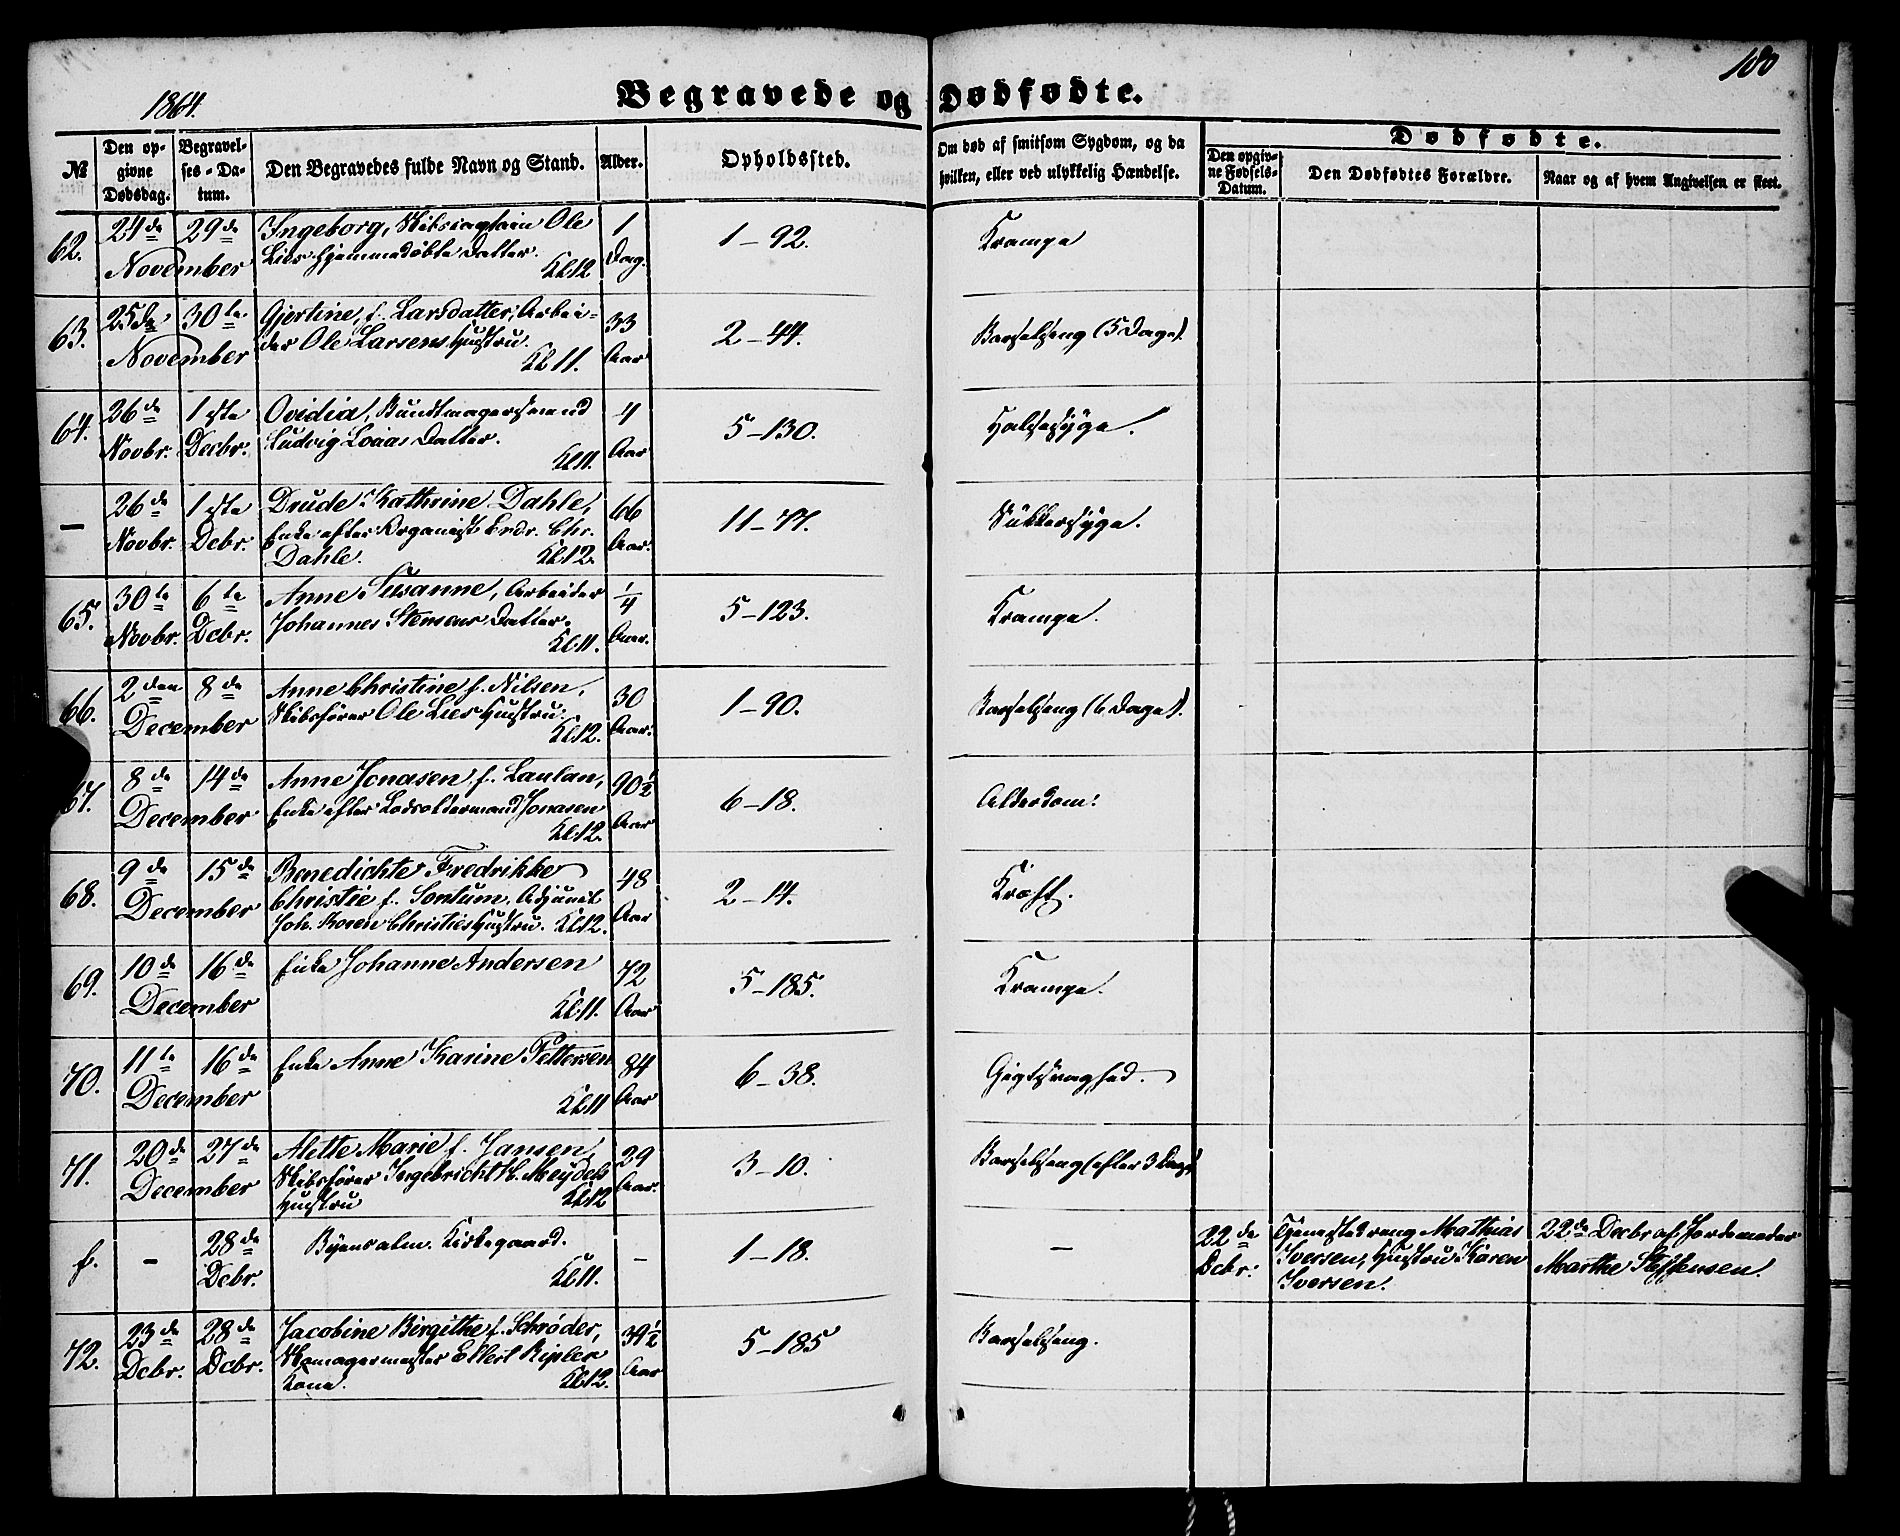 180
1864.
Begravede og Dødfødte.
№
Den op-
givne
Dødsdag.
Begravel-
ses-Da-
tum.
Den Begravedes fulde Navn og Stand.
Alder.
Opholdssted.
Om død af smitsom Sygdom, og da
hvilken, eller ved ulykkelig Hændelse.
Dødfødte.
Den opgiv-
ne Fødsels-
Datum.
Den Dødfødtes Forældre.
Naar og af hvem Angivelsen er skeet.
62. 24de November 29de Ingeborg, Skibscaptain Ole
Lies hjemmedøbte Datter.
Kl 12
1 Dag. 1-92. Krampe
63. 25de November 30te Gjertine, f. Larsdatter, Arbei-
der Ole Larsens Hustru.
Kl 11.
33 Aar 2-44. Barselseng (5 Dage).
64. 26de Novbr. 1ste Decbr. Ovidia, Bundtmagersvend
Ludvig Datter.
Kl 11.
4 Aar 5-130. Halssyge.
- 26de Novbr. 1ste Dcbr. Drude Kathrine Dahle,
Enke efter Organist Endr. Chr.
Dahle. Kl 12.
66 Aar. 11-77. Sukkersyge.
65. 30te Novbr. 6te Dcbr. Anne Susanne, Arbeider
Johannes Stensens Datter.
Kl 11.
1/4 Aar. 5-123. Krampe.
66. 2den December 8de Anne Christine f. Nilsen,
Skibsfører Ole Lies Hustru.
Kl 12.
30 Aar. 1-90. Barselseng (6 Dage).
67. 8de December 14de Anne Jonasen f. Laulan,
Enke efter Lodsoldermand Jonasen
Kl 12.
90½ Aar 6-18. Alderdom.
68. 9de December 15de Benedichte Fredrikke
Christie f. Sontum, Adjunct
Joh. Koren Christies Hustru. Kl 12.
48 Aar 2-14. Kræft.
69. 10de December 16de Enke Johanne Andersen
Kl 11.
72 Aar 5-185. Krampe.
70. 11te December 16de Enke Anne Karine Pettersen
Kl 11
84 Aar 6-38. Gigtsvaghed.
71. 20de December 27de Alette Marie f. Jansen,
Skibsfører Ingebricht H. Meydels
Hustru Kl 12
29 Aar. 3-10. Barselseng (efter 3 Dage)
f. - 28de Dcbr. Byens alm. Kirkegaard.
Kl 11.
- 1-18. - 22de Dcbr. Tjenestedreng Mathias
Iversen, Hustru Karen
Iversen.
22de Decbr af Jordemoder
Marthe Steffensen.
72. 23de Dcbr. 28de Dcbr. Jacobine Birgithe f. Schrøder,
Skomagermester Ellert Ripler
Kone. Kl 12.
39½ Aar 5-185 Barselseng.